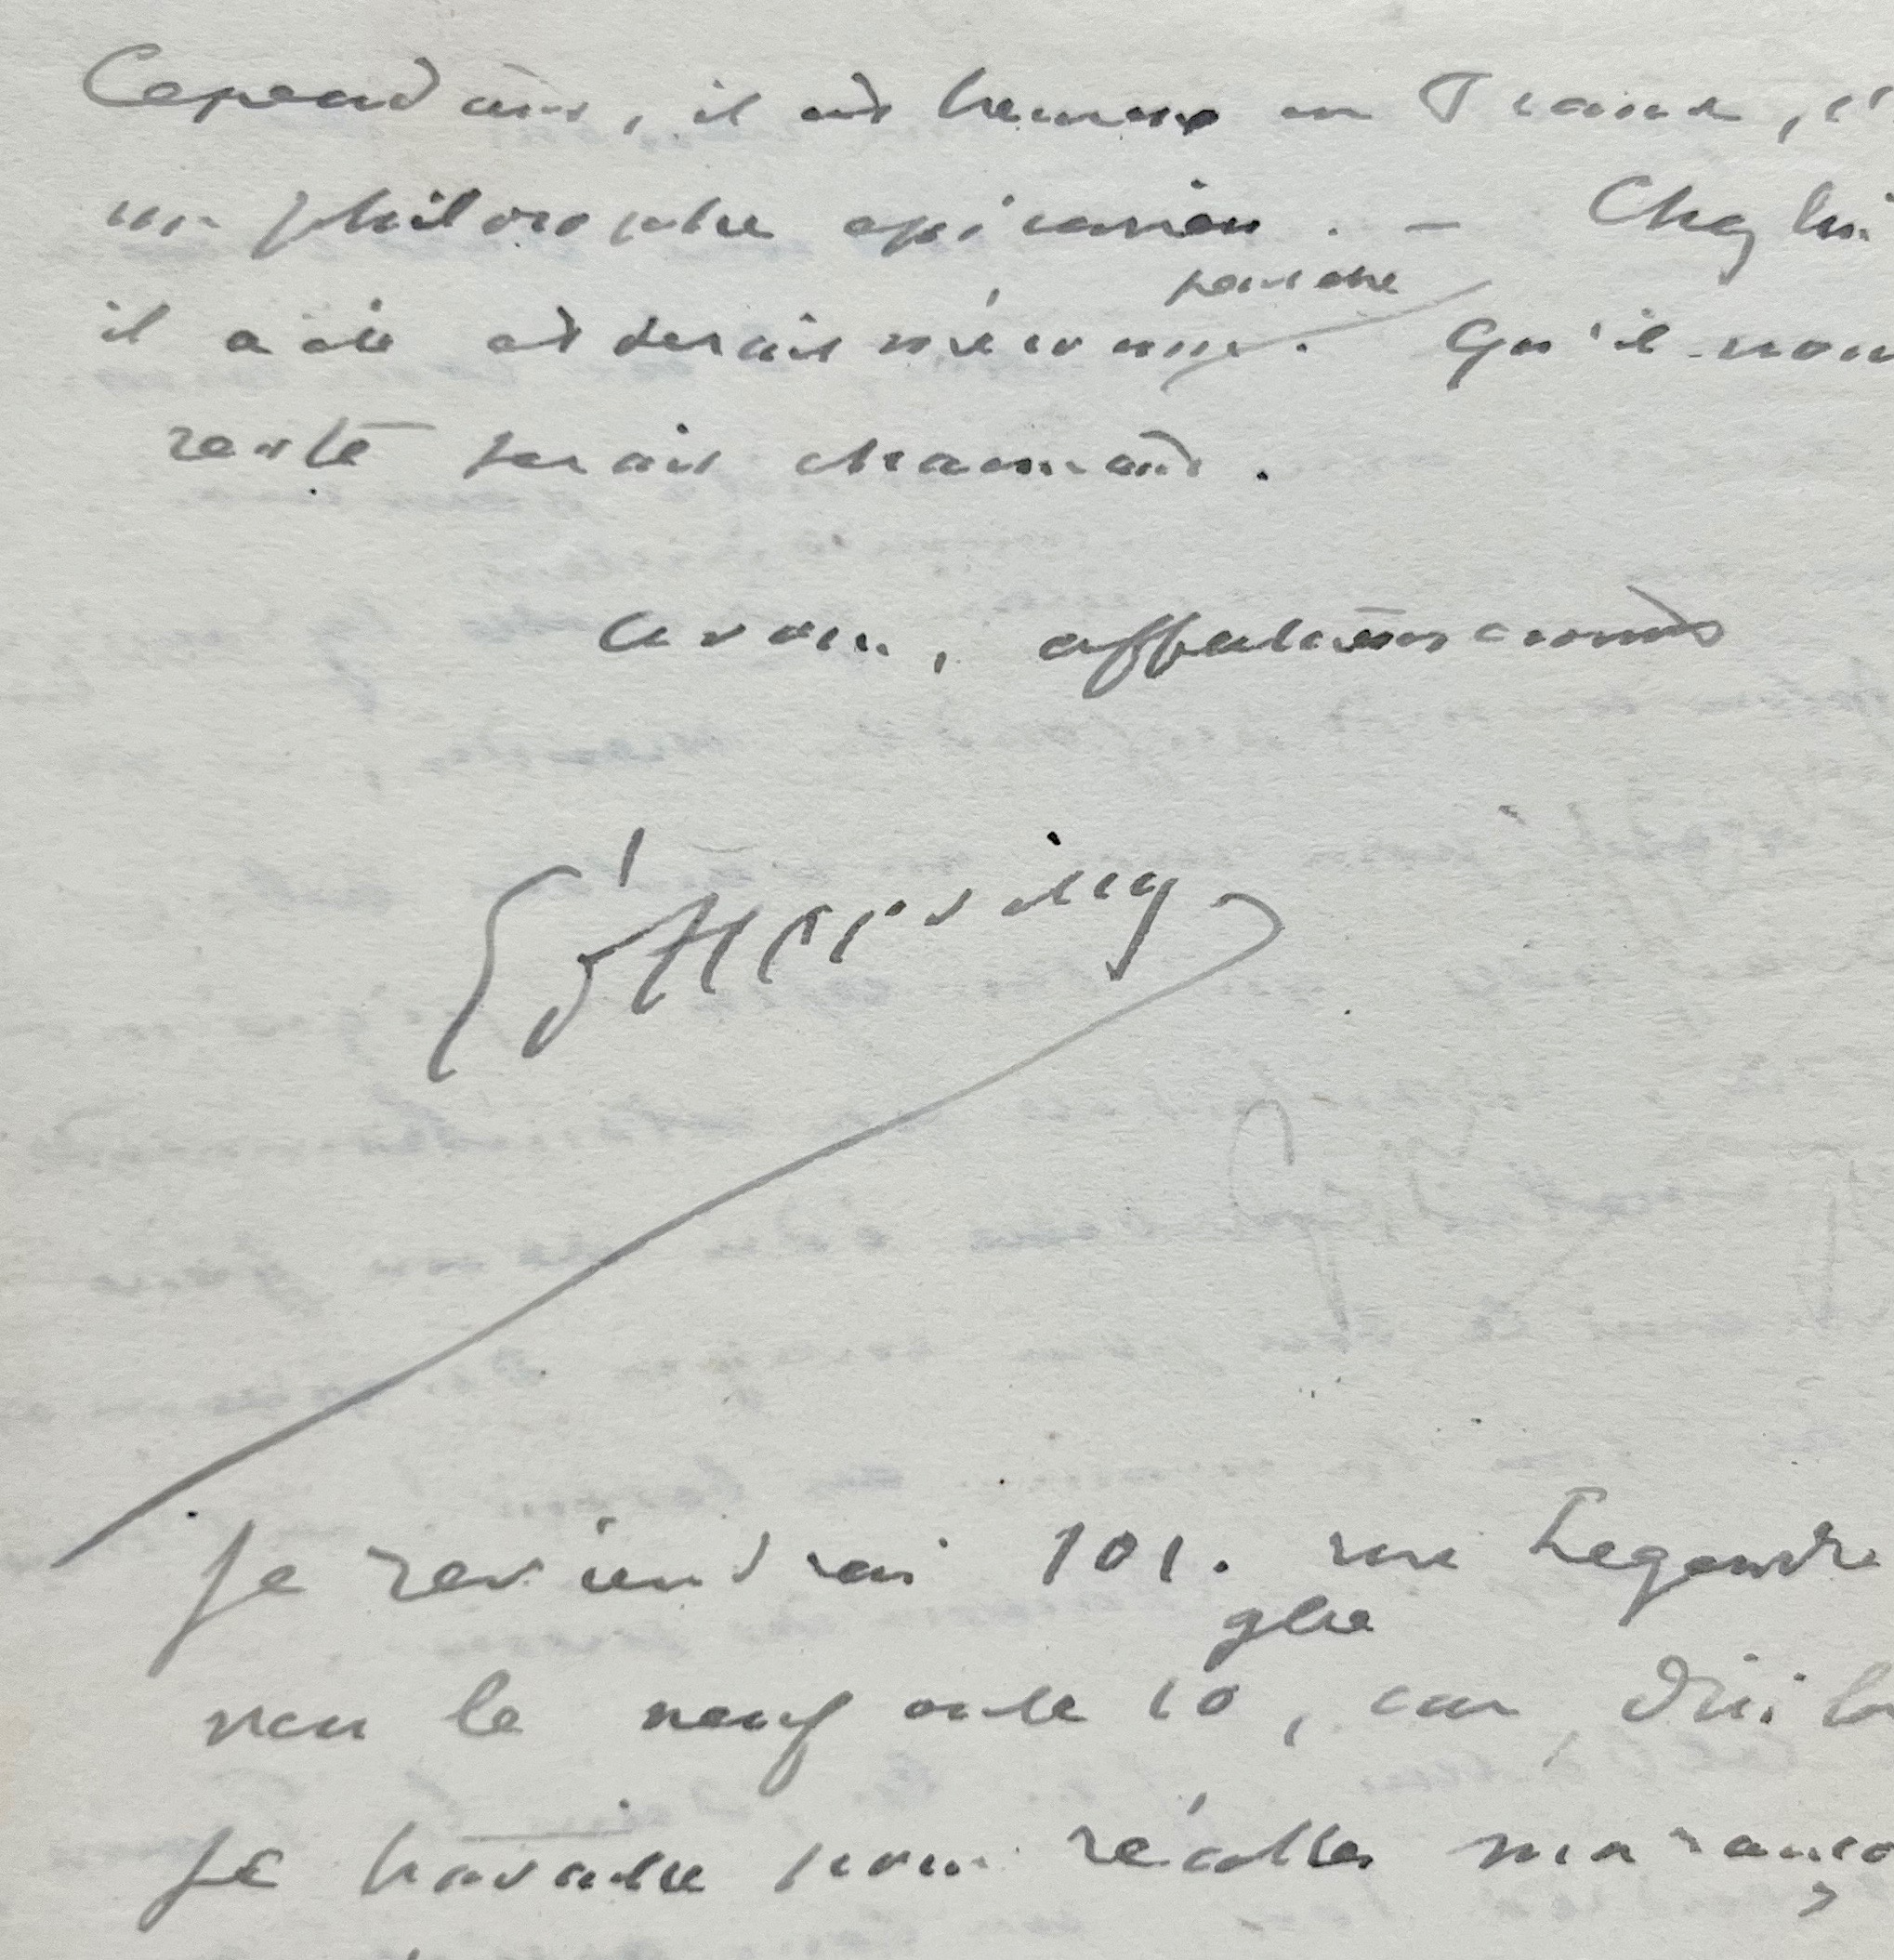 Cependant, il est heureux en France, c'
un philosophe épicurien. - Chez lui
peut être
il a été et serait méconnu. Qu'il nous
reste serait charmant.
à vous, affectueusement
Je reviendrai 101. rue Legendre
vers le neuf ou le 10, car, d'ici là
Je travaille pour réaliser ma